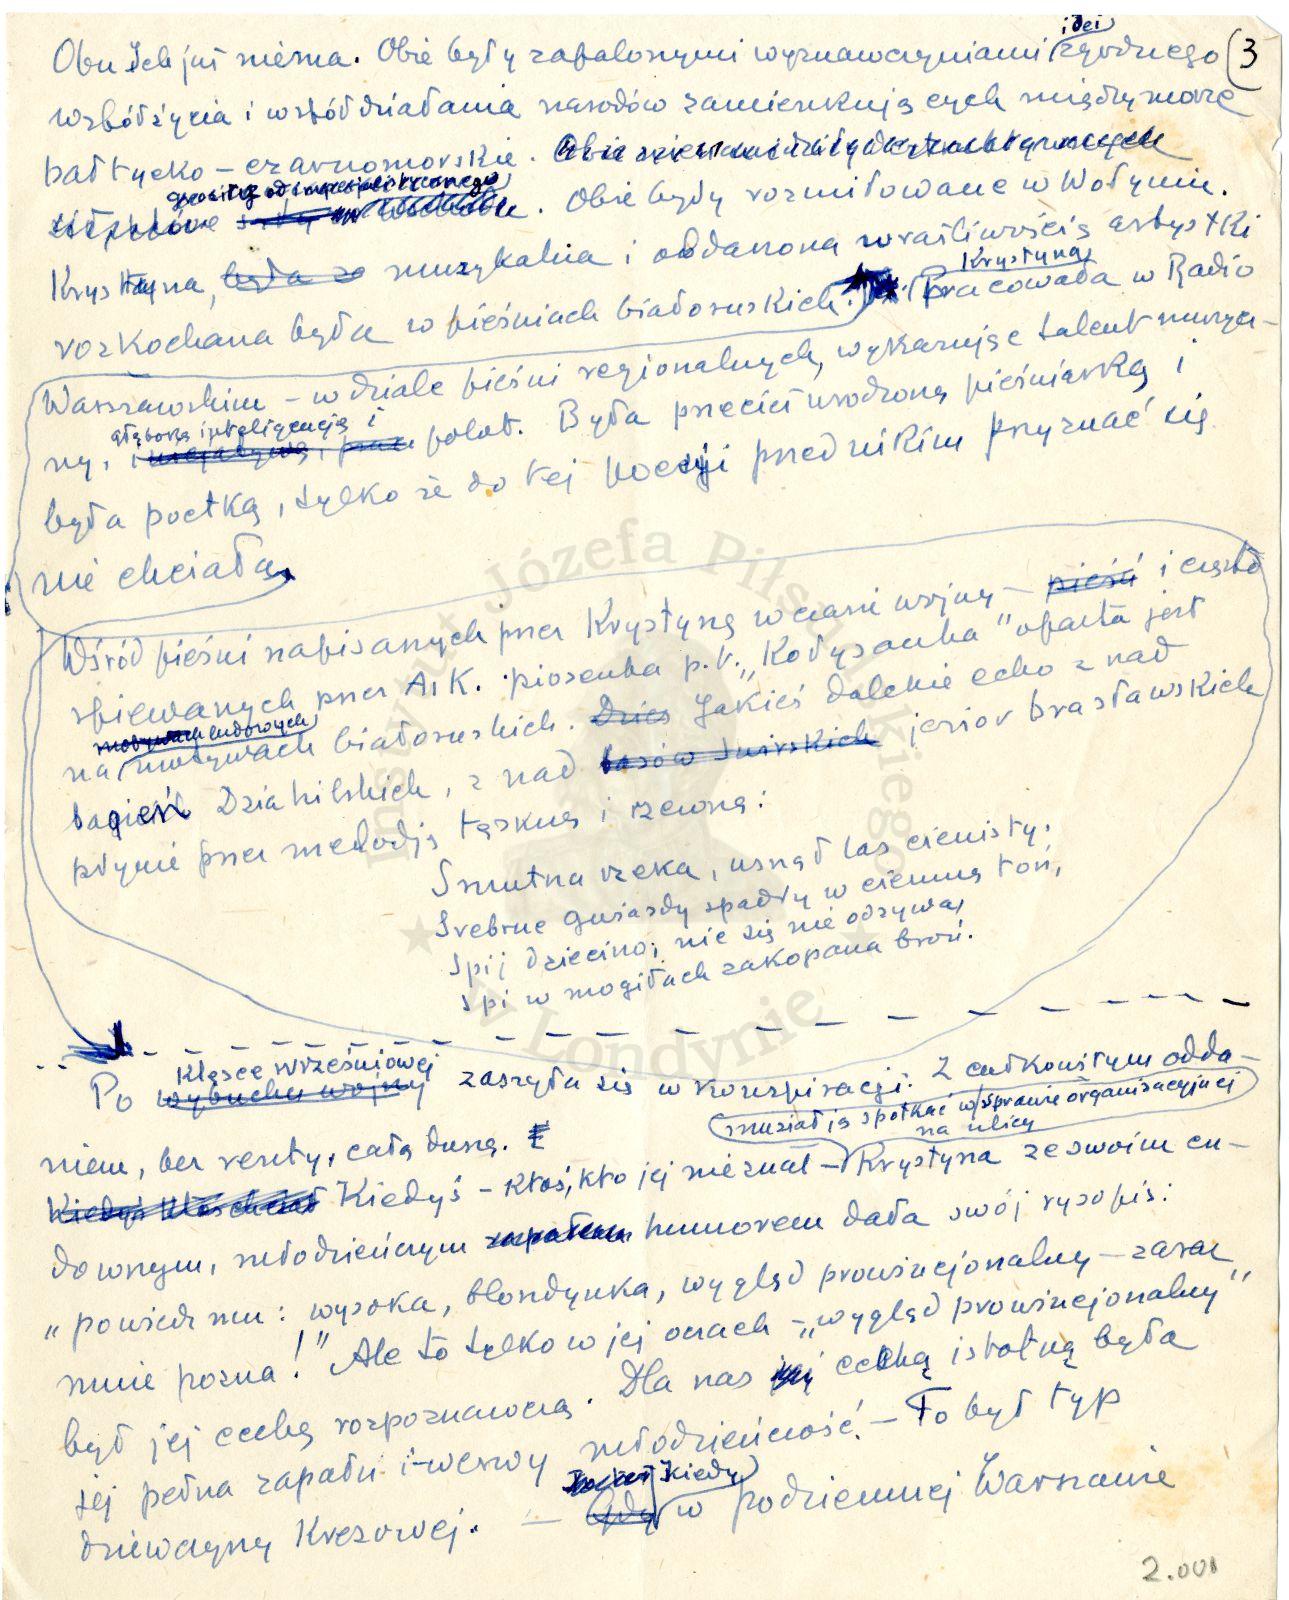 idei
Obu Ich już niéma. Obie były zapalonymi wyznawczyniami zgodnego (3
wspólżycia i współdziałania narodów zamieszkujących międzymorze
bałtycko – czarnomorskie.
Obie były rozmiłowane w Wołyniu.
Krystyna, była muzykalna i obdarzona wrażliwością artystki
Krystyna
rozkochana była w pieśniach białoruskich. Pracowała w Radio
Warszawskim – w dziale pieśni regionalnych, wykazując talent muzycz-
głęboką inteligencją i
ny, i inicjatywą, polot. Była przecież urodzoną pieśniarką i
była poetką, tylko że do tej poezji przed nikim przyznać się
nie chciała.
Wśród pieśni napisanych przez Krystynę w czasie wojny – pieśń i często
śpiewanych przez A.K. piosenka p.t. „Kołysanka" oparta jest
motywach ludowych
na motywach białoruskich. Jakieś dalekie echo z nad
bagień Dziahilskich, z nad jezior brasławskich
płynie przez melodję tęskną i rzewną:
Smutna rzeka, usnął las cienisty.
Srebrne gwiazdy spadły w ciemną toń,
Spij dziecino, nie się nie odzywa,
Spi w mogiłach zakopana broń.
Klęsce wrześniowej
Po wybuchu wojny zaszyła się w konspiracji. Z całkowitym odda-
musiał ją spotkać w sprawie organizacyjnej
na ulicy
niem, bez reszty, całą duszą.
Kiedyś – ktoś, kto jej nie znał – Krystyna ze swoim cu-
downym, młodzieńczym zapałem humorem dała swój rysopis:
„powiedz mu: wysoka, blondynka, wygląd prowincjonalny – zaraz
mnie pozna!" Ale to tylko w jej oczach – „wygląd prowincjonalny"
był jej cechą rozpoznawczą. Dla nas jej cechą istotną była
jej pełna zapału i werwy młodzieńczość. – To był typ
Kiedy
dziewczyny Kresowej. – Gdy w podziemnej Warszawie
2.001
Instytut Józefa Piłsudskiego
w Londynie